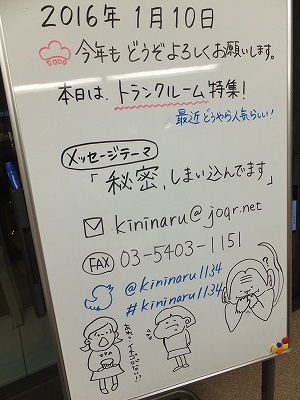 2016年1月10日
今年もどうぞよろしくお願いします。
本日は、トランクルーム特集！
最近どうやら人気らしい！
メッセージテーマ
「秘密、しまい込んでます」
kininaru@joqr.net
FAX 03-5403-1151
@kininaru1134
#kininaru1134